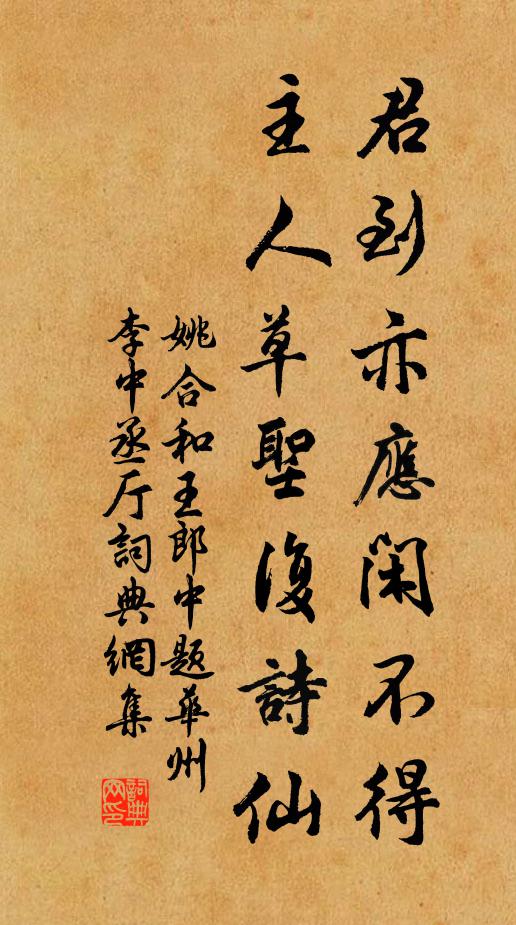 君到亦應閑不得
主人草聖復詩仙
姚合和王郎中題華州
李中丞厅詞典網集
詞典
网印